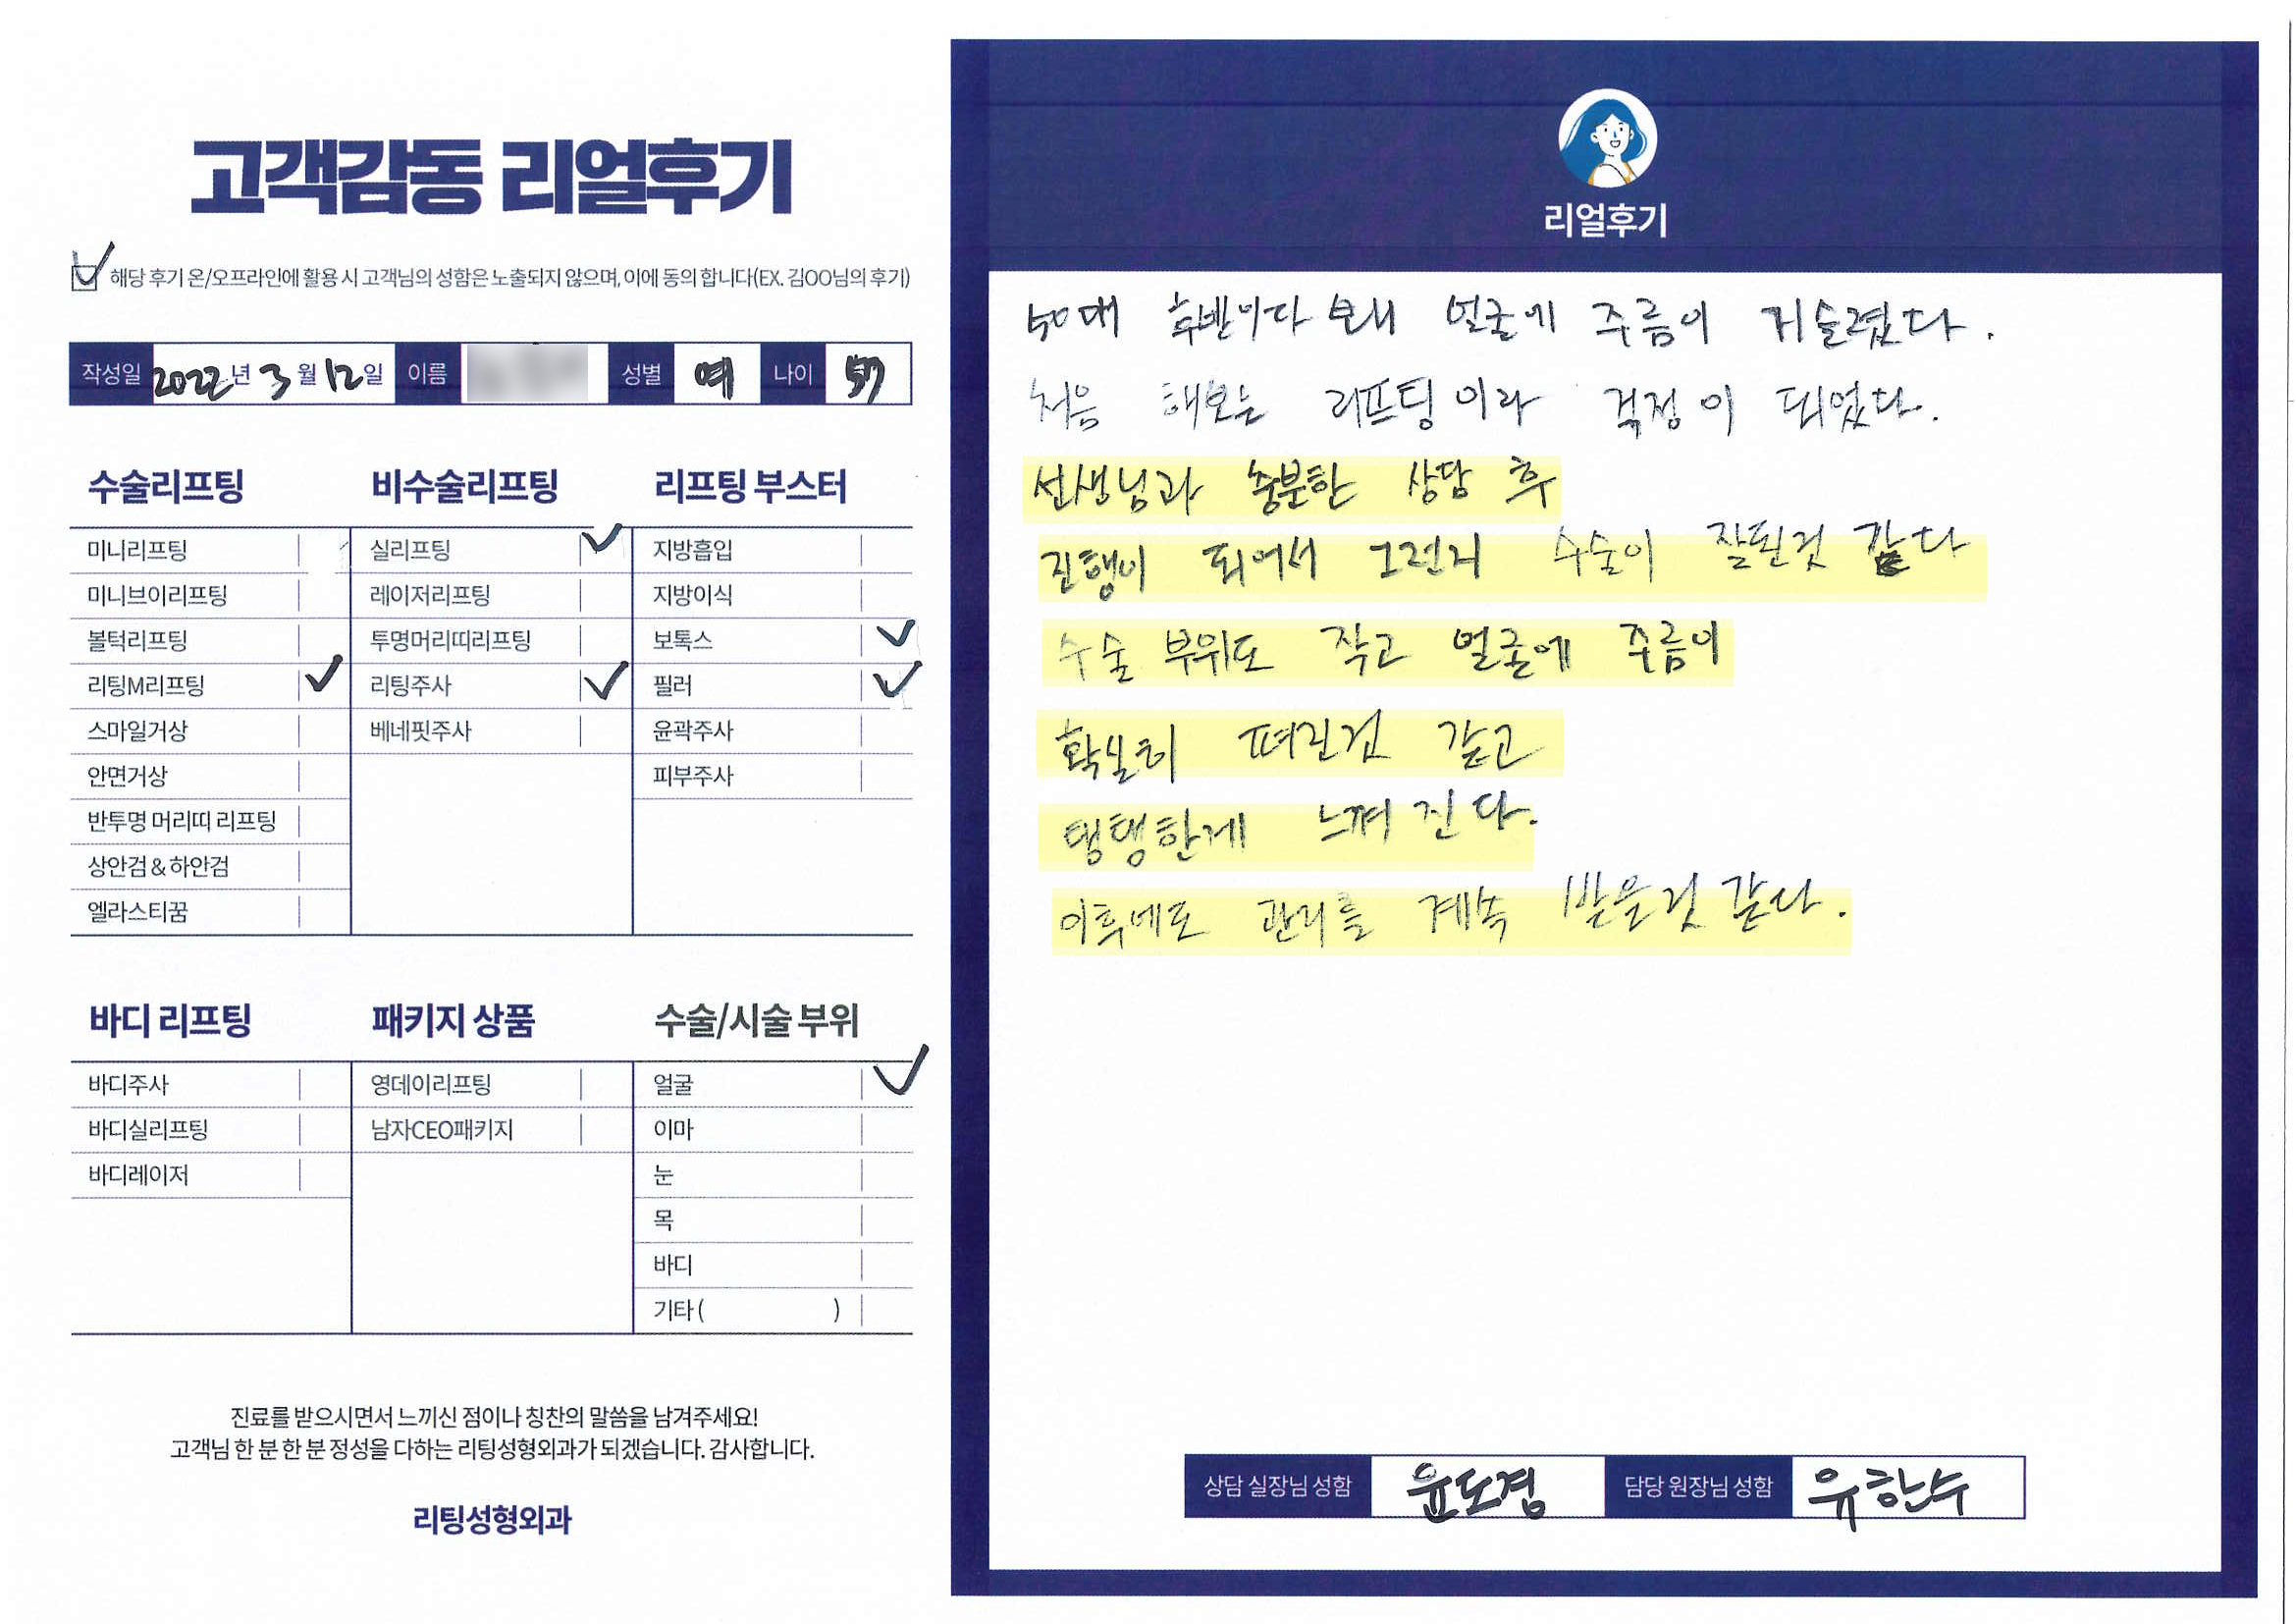 고객감동 리얼후기
해당 후기 온/오프라인에 활용 시 고객님의 성함은 노출되지 않으며, 이에 동의 합니다(EX. 김OO님의 후기)
작성일 2022년 3월 12일 이름 성별 여 나이 57
수술리프팅
미니리프팅
미니브이리프팅
볼턱리프팅
리팅M리프팅
스마일거상
안면거상
반투명 머리띠 리프팅
상안검 & 하안검
엘라스티꿈
비수술리프팅
실리프팅
레이저리프팅
투명머리띠리프팅
리팅주사
베네핏주사
리프팅 부스터
지방흡입
지방이식
보톡스
필러
윤곽주사
피부주사
바디 리프팅
바디주사
바디실리프팅
바디레이저
패키지 상품
영데이리프팅
남자CEO패키지
수술/시술 부위
얼굴
이마
눈
목
바디
기타 ( )
진료를 받으시면서 느끼신 점이나 칭찬의 말씀을 남겨주세요!
고객님 한 분 한 분 정성을 다하는 리팅성형외과가 되겠습니다. 감사합니다.
리팅성형외과
리얼후기
50대 후반이다 보니 얼굴에 주름이 거슬렸다.
처음 해보는 리프팅이라 걱정이 되었다.
선생님과 충분한 상담 후
진행이 되어서 그런지 수술이 잘된것 같다
수술 부위도 작고 얼굴에 주름이
확실히 펴진것 같고
탱탱한게 느껴진다.
이후에도 관리를 계속 받을것 같다.
상담 실장님 성함 윤도경 담당 원장님 성함 유한수